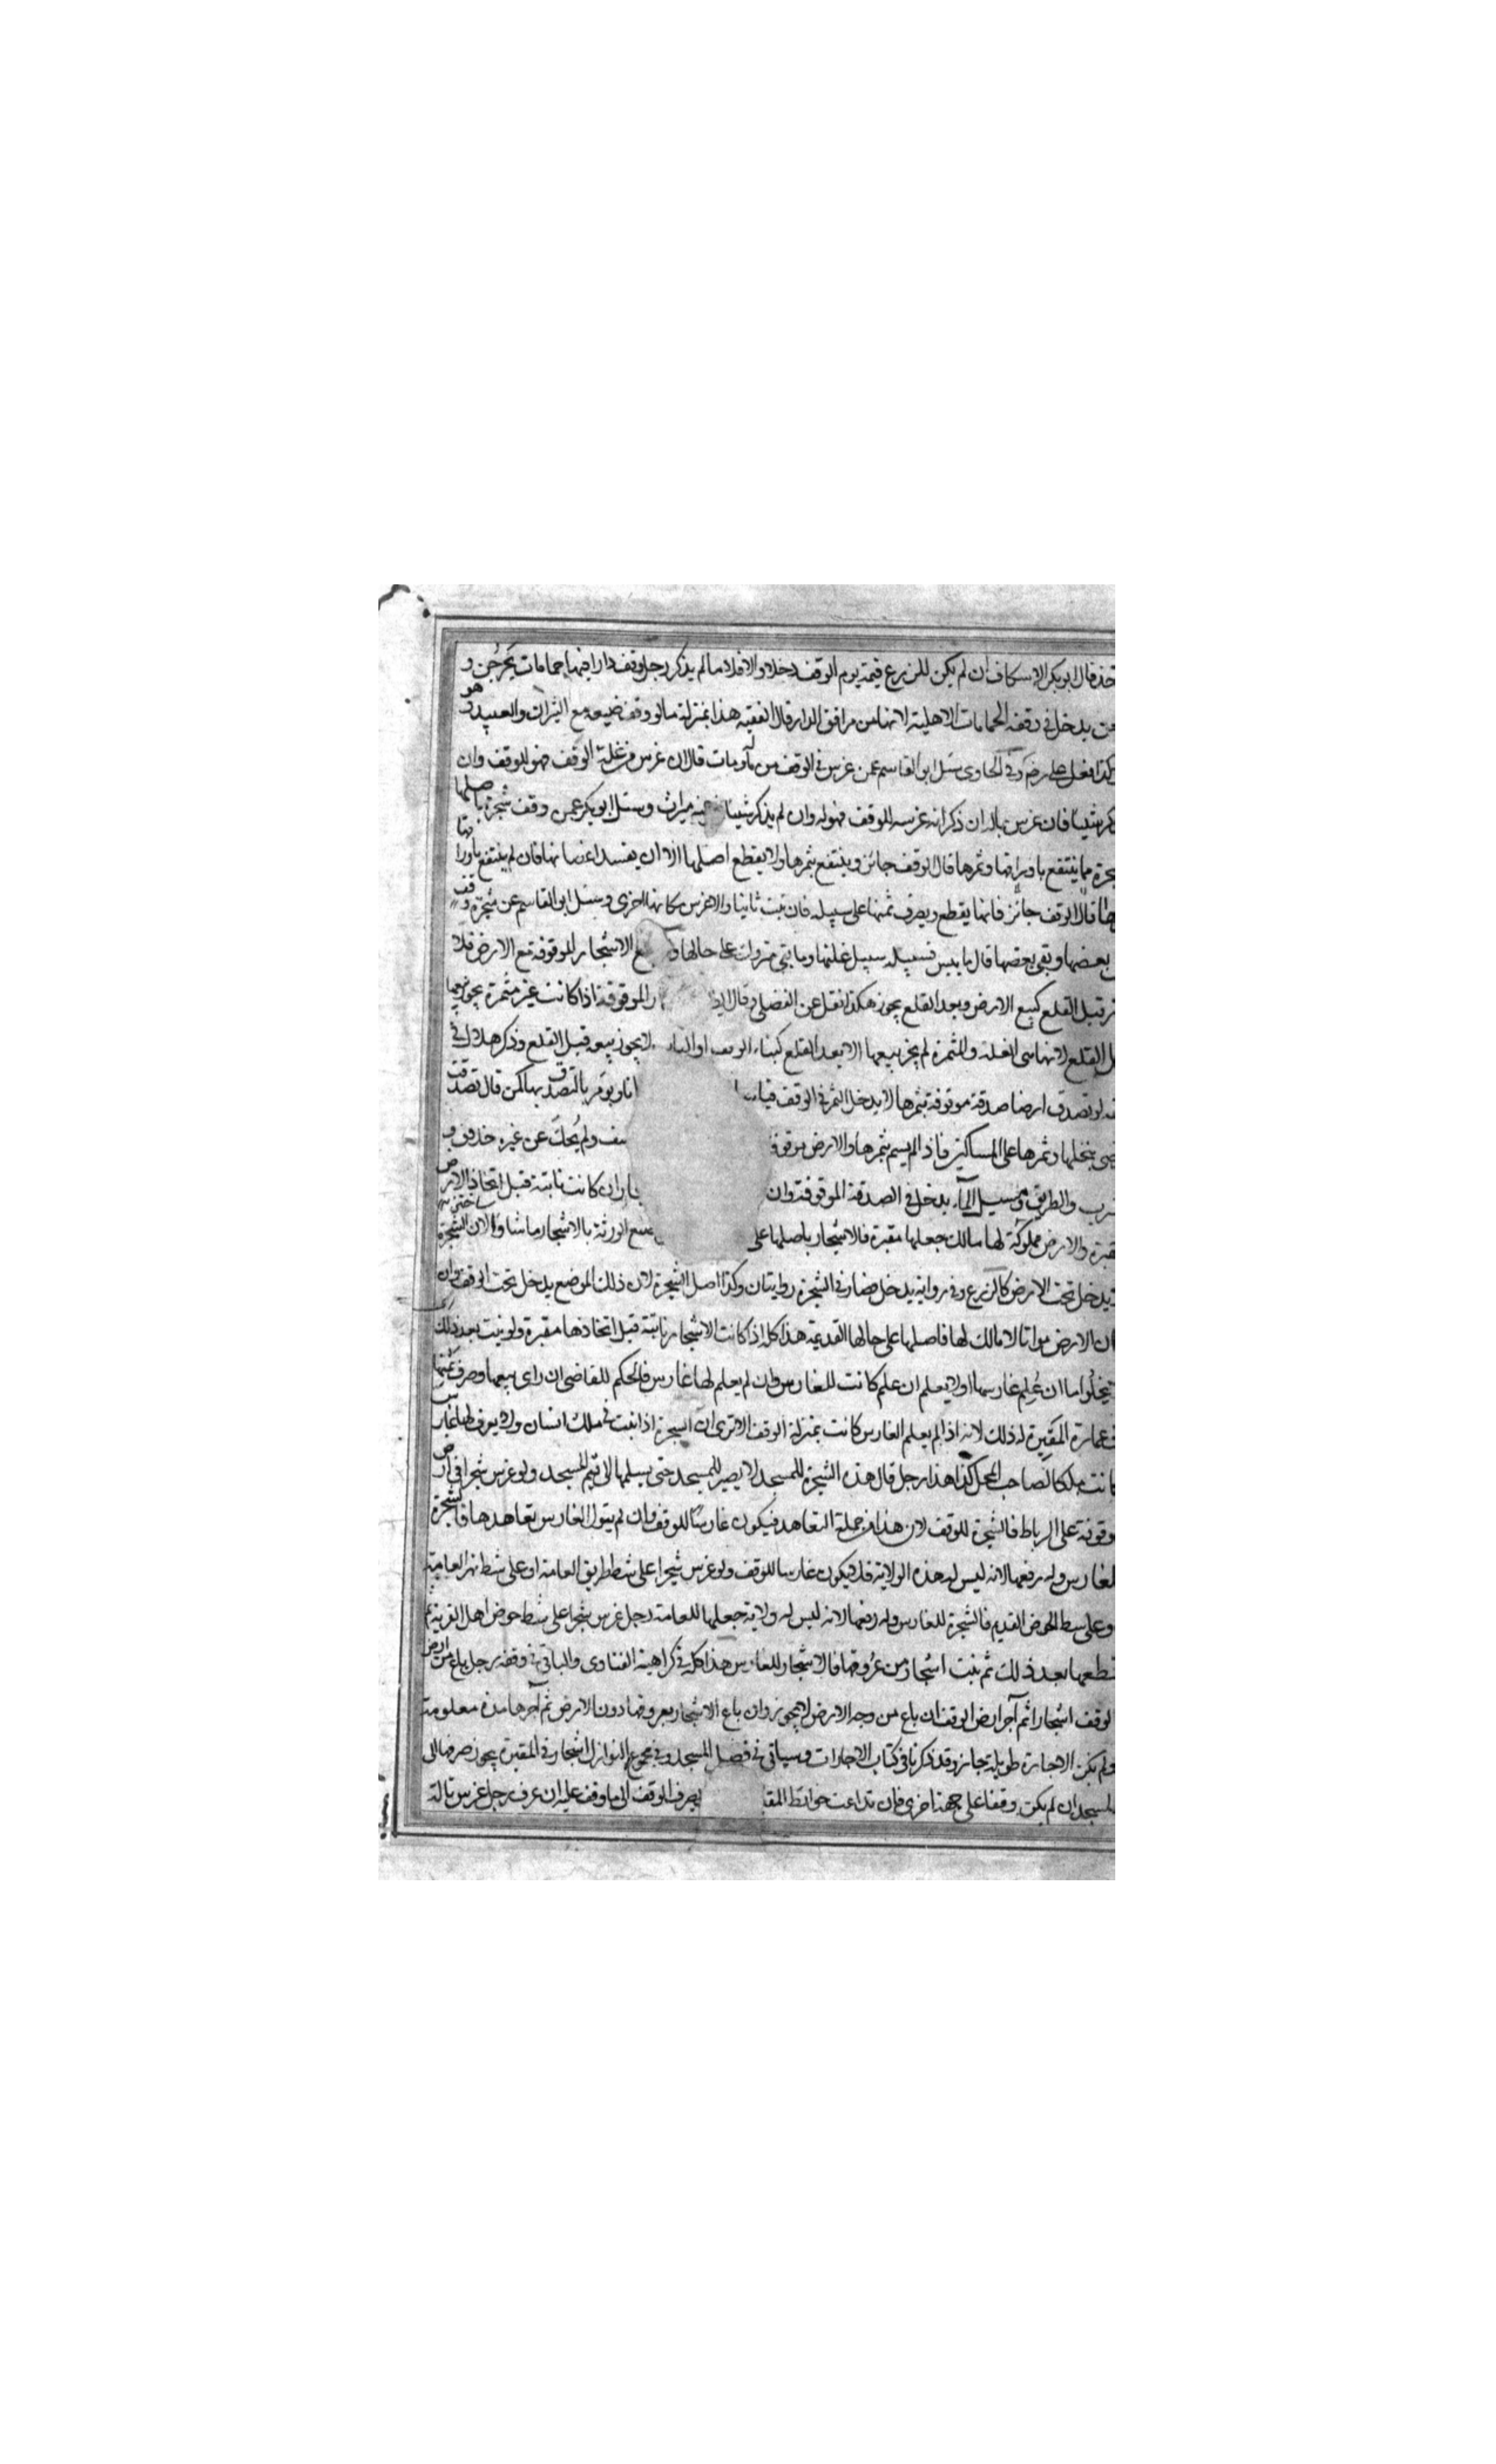 قال ابو بكر الاسكاف ان لم يكن للزرع قيمة يوم الوقف دخلا والا فلا ما لم يذكر رجل وقف دارا فيها حمامات يخرجن و
يدخل في وقفه الحمامات الاهلية لانها من مرافق الدار قال الفقيه هذا بمنزلة ما لو وقف ضيعة مع الثيران والعبيد وهو
على رضه وفي الحاوي سئل ابو القاسم عمن غرس في الوقف من ماله ومات قال ان غرس من غلة الوقف فهو للوقف وان
شيئا فان غرس بماله ان ذكر انه غرسه للوقف فهو له وان لم يذكر شيئا ميراث وسئل ابو بكر عمن وقف شجرة باصلها
مما ينتفع باوراقها وثمرها قال الوقف جائز وينتفع بثمرها ولا يقطع اصلها الا ان يفسد اغصانها فان لم ينتفع باوراقها
قال الوقف جائز فانها يقطع ويصرف ثمنها على سبيله فان نبت ثانيا والا غرس مكانها اخرى وسئل ابو القاسم عن شجرة وقف
بعضها وبقي بعضها قال ما يبس فسبيله سبيل غلتها وما بقي متروك على حالها الاشجار الموقوفة مع الارض فلا
قبل القلع كبيع الارض وبعد القلع يجوز هكذا نقل عن الفضلي وقال الموقوفة اذا كانت غير مثمرة يجوز بيعها
القلع لانها هي الغلة والمثمرة لم يجز بيعها الا بعد القلع كبناء الوقف لا يجوز بيعه قبل القلع وذكر هلال في
لو تصدق ارضا صدقة موقوفة بثمرها لا يدخل الثمر في الوقف قياسا انا ويؤمر بالتصدق بها لكن قال تصدقت
بنخلها وثمرها على المساكين فاذا لم يسم ثمرها والارض موقوفة ولم يحك عن غيره خلاف و
والطريق ومسيل الماء يدخل في الصدقة الموقوفة وان ان كانت نابتة قبل اتخاذ الارض
والارض مملوكة لها مالك جعلها مقبرة فالاشجار باصلها على يصنع الورثة بالاشجار ما شاؤا لان الشجرة
يدخل تحت الارض كالزرع وفي رواية يدخل فصار في الشجرة روايتان وكذا اصل الشجرة لان ذلك الموضع يدخل تحت الوقف وان
الارض مواتا لا مالك لها فاصلها على حالها القديمة هذا كله اذا كانت الاشجار نابتة قبل اتخاذها مقبرة ولو نبت بعد ذلك
يخلوا ما ان علم غارسها او لا يعلم ان علم كانت للغارس وان لم يعلم لها غارس فالحكم للقاضي ان راى بيعها وصرف ثمنها
عمارة المقبرة له ذلك لانه اذا لم يعلم الغارس كانت بمنزلة الوقف الا ترى ان الشجرة اذا نبت في ملك انسان ولا يعرف لها غارس
كانت ملكا لصاحب المحل كذا هذا رجل قال هذه الشجرة للمسجد لا يصير للمسجد حتى يسلمها الى قيم المسجد ولو غرس شجرا في ارض
موقوفة على الرباط فالشجرة للوقف لان هذا من جملة التعاهد فيكون غارسا للوقف وان لم يتول الغارس تعاهدها فالشجرة
للغارس وله رفعها لانه ليس له هذه الولاية فلا يكون غارسا للوقف ولو غرس شجرا على شط طريق العامة او على شط نهر العامة
وعلى شط الحوض القديم فالشجرة للغارس وله رفعها لانه ليس له ولاية جعلها للعامة رجل غرس شجرا على شط حوض اهل القرية ثم
قطعها بعد ذلك ثم نبت اشجار من عروقها فالاشجار للغارس هذا كله في كراهية الفتاوى والباقي في وقفه رجل باع من ارض
الوقف اشجارا ثم آجر ارض الوقف ان باع من وجه الارض لا يجوز وان باع الاشجار بعروقها دون الارض ثم آجرها مدة معلومة
ولم يكن الاجارة طويلة جاز وقد ذكرنا في كتاب الاجارات وسياتي في فصل المسجد وفي مجموع النوازل اشجار في المقبرة يجوز صرفها الى
المسجد ان لم يكن وقفا على جهة اخرى فان تداعت حوائط المقبرة يصرف الوقف الى ما وقف عليه ان عرف رجل غرس تالة